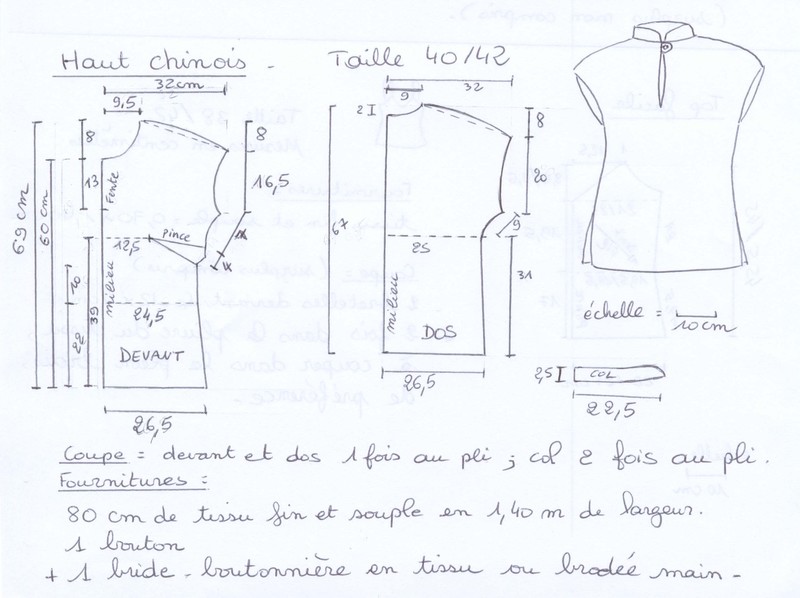 Haut chinois - Taille 40/42
32cm
9,5
8
13
69 cm
60 cm
Fente
8
16,5
12,5
Pince
milieu
10
39
22
24,5
DEVANT
26,5
32
9
2
8
20
67
9
25
milieu
31
DOS
26,5
échelle =
10cm
2,5
COL
22,5
Coupe = devant et dos 1 fois au pli ; col 2 fois au pli.
Fournitures :
80 cm de tissu fin et souple en 1,40 m de largeur.
1 bouton
+ 1 bride - boutonnière en tissu ou brodée main -